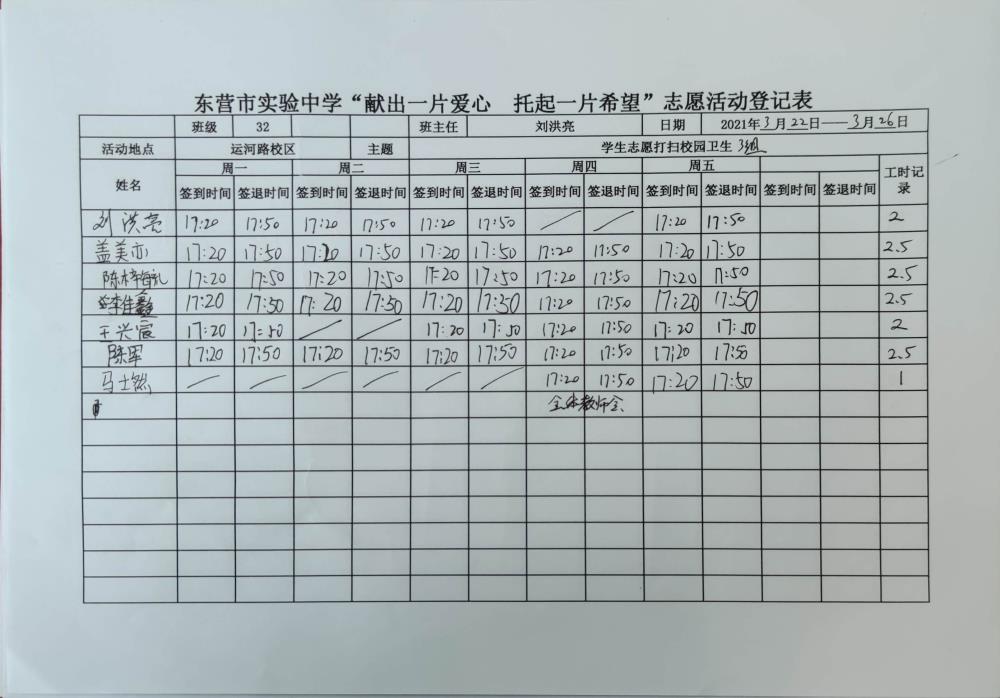 东营市实验中学“献出一片爱心 托起一片希望”志愿活动登记表
班级 32 班主任 刘洪亮 日期 2021年3月22日——3月26日
活动地点 运河路校区 主题 学生志愿打扫校园卫生 3组
姓名 周一 周二 周三 周四 周五 工时记录
签到时间 签退时间 签到时间 签退时间 签到时间 签退时间 签到时间 签退时间 签到时间 签退时间 签到时间 签退时间
刘洪亮 17:20 17:50 17:20 17:50 17:20 17:50 / / 17:20 17:50 2
盖美亦 17:20 17:50 17:20 17:50 17:20 17:50 17:20 17:50 17:20 17:50 2.5
陈梓 17:20 17:50 17:20 17:50 17:20 17:50 17:20 17:50 17:20 17:50 2.5
李佳 17:20 17:50 17:20 17:50 17:20 17:50 17:20 17:50 17:20 17:50 2.5
王兴宸 17:20 17:50 / / 17:20 17:50 17:20 17:50 17:20 17:50 2
陈军 17:20 17:50 17:20 17:50 17:20 17:50 17:20 17:50 17:20 17:50 2.5
马士然 / / / / / / 17:20 17:50 17:20 17:50 1
全体教师会